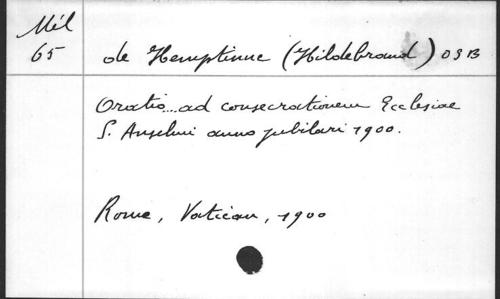 Mél
65
de Hemptinne (Hildebrand) OSB
Oratio...ad consecrationem Ecclesiae
S. Anselmi anno jubilari 1900.
Rome, Vatican, 1900